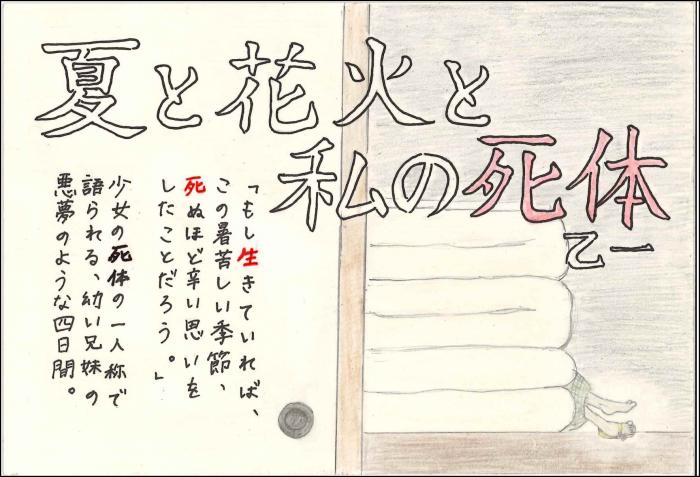 夏と花火と
私の死体
乙一
「もし生きていれば、
この暑苦しい季節、
死ぬほど辛い思いを
したことだろう。」
少女の死体の一人称で
語られる、幼い兄妹の
悪夢のような四日間。